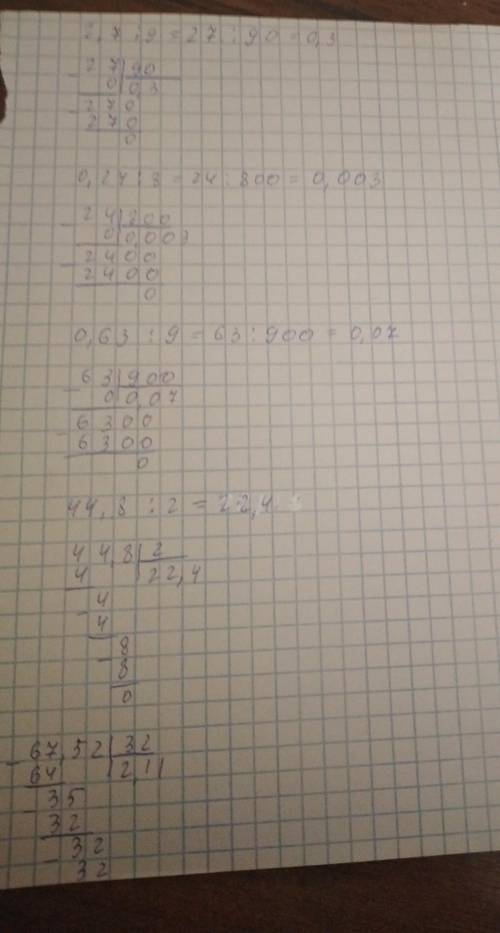 2,7 : 9 = 27 : 90 = 0,3
- 27 | 90
0 | 0,3
- 270
270
0
0,24 : 8 = 24 : 800 = 0,003
- 24 | 800
0 | 0,003
- 2400
2400
0
0,63 : 9 = 63 : 900 = 0,07
- 63 | 900
0 | 0,07
- 6300
6300
0
44,8 : 2 = 22,4
44,8 | 2
4 | 22,4
- 4
4
- 8
8
0
- 67,52 | 32
64 | 2,11
- 35
32
- 32
32